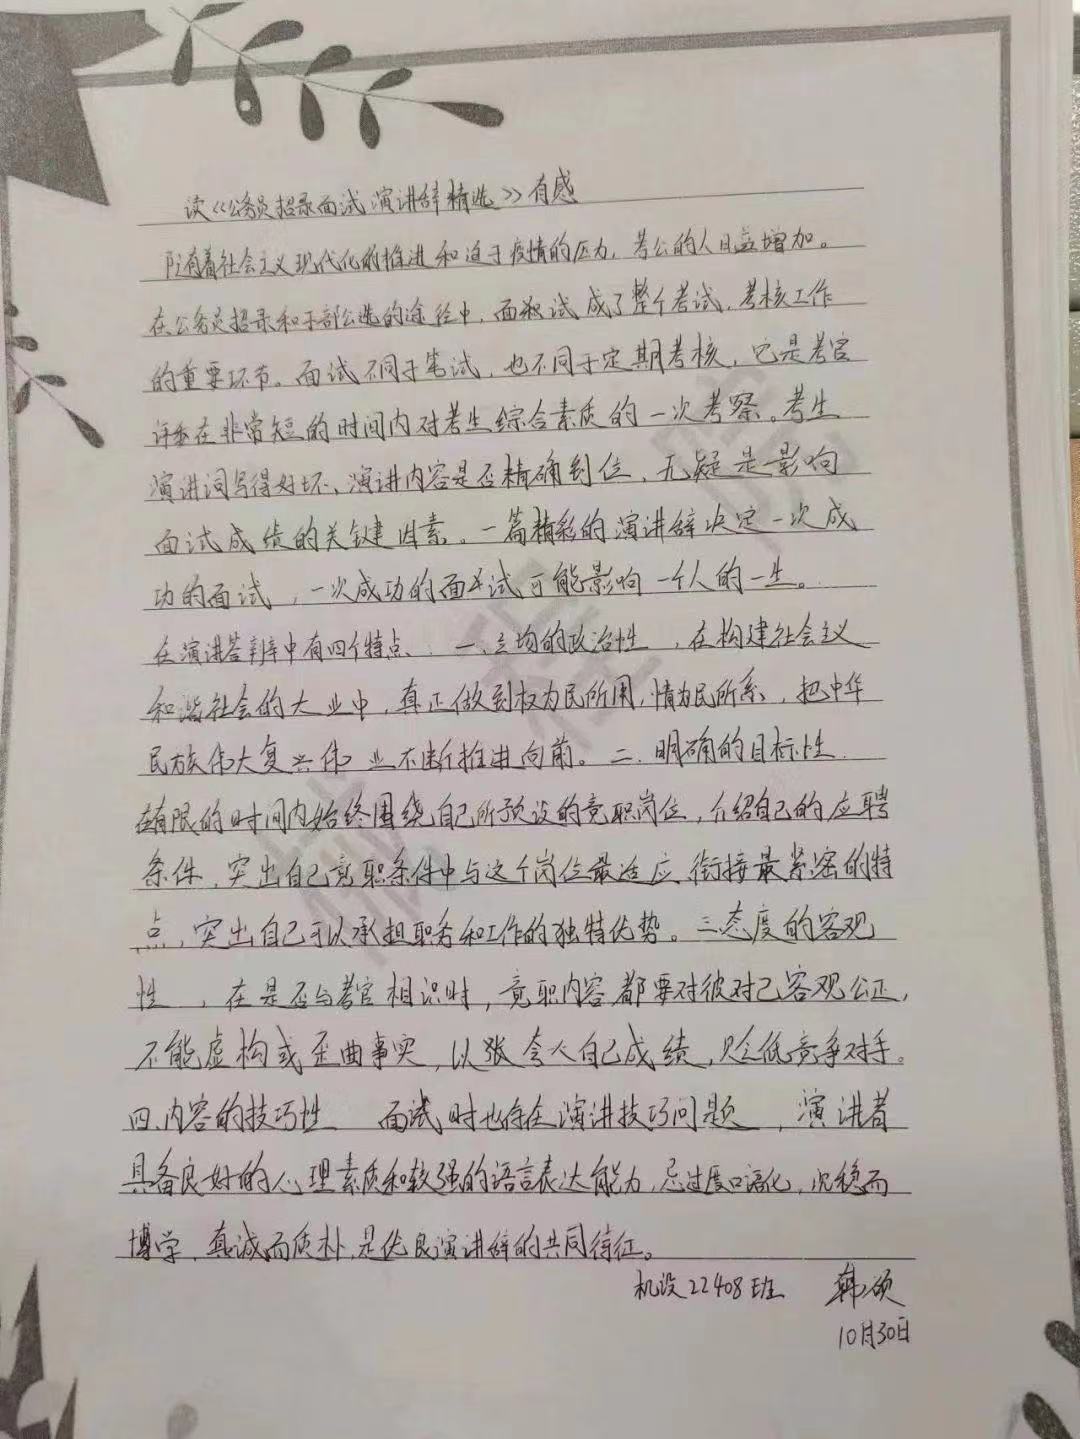 读《公务员招录面试演讲辞精选》有感
随着社会主义现代化的推进和迫于疫情的压力，考公的人日益增加。
在公务员招录和干部公选的途径中，面试成了整个考试，考核工作
的重要环节。面试不同于笔试，也不同于定期考核，它是考官
评委在非常短的时间内对考生综合素质的一次考察。考生
演讲词写得好坏、演讲内容是否精确到位，无疑是影响
面试成绩的关键因素。一篇精彩的演讲辞决定一次成
功的面试，一次成功的面试可能影响一个人的一生。
在演讲答辩中有四个特点、一、立场的政治性，在构建社会主义
和谐社会的大业中，真正做到权为民所用，情为民所系，把中华
民族伟大复兴伟业不断推进向前。二、明确的目标性
在有限的时间内始终围绕自己所预设的竞职岗位，介绍自己的应聘
条件，突出自己竞职条件中与这个岗位最适应、衔接最紧密的特
点，突出自己可以承担职务和工作的独特优势。三态度的客观
性，在是否与考官相识时，竞职内容都要对彼对己客观公正，
不能虚构或歪曲事实，以张夸大自己成绩，贬低竞争对手。
四、内容的技巧性 面试时也存在演讲技巧问题，演讲者
具备良好的心理素质和较强的语言表达能力，忌过度口语化，沉稳而
博学、真诚而质朴，是优良演讲辞的共同特征。
机设22408班 韩硕
10月30日